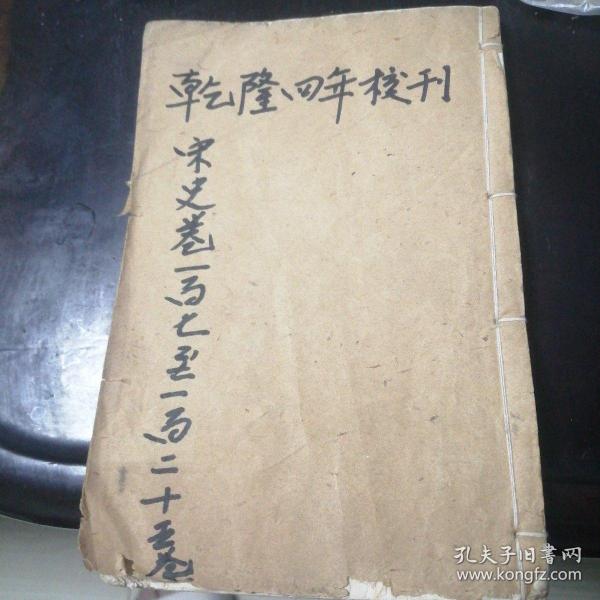 乾隆四年校刊
宋史卷一百七至一百二十五卷
孔夫子旧書网
www.kongfz.com